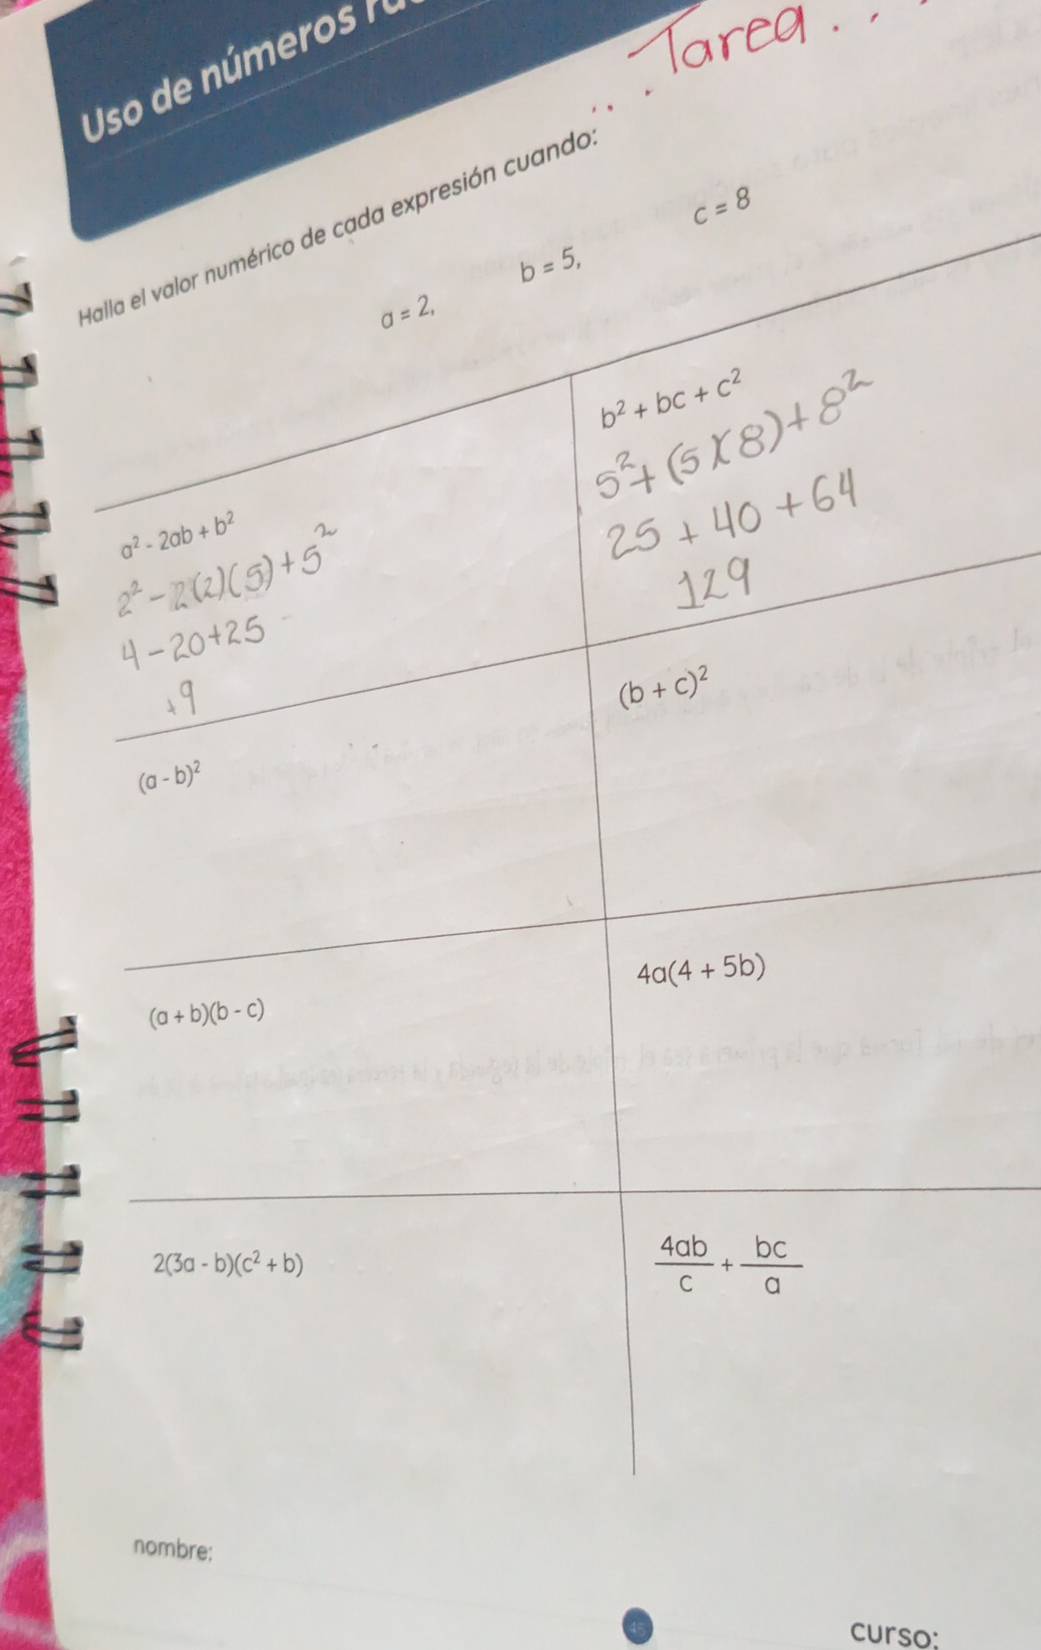 Uso de números
Tarea...
Halla el valor numérico de cada expresión cuando:
a = 2, b = 5, c = 8
a² - 2ab + b²
2² - 2(2)(5) + 5²
4 - 20 + 25
+9
b² + bc + c²
5² + (5)(8) + 8²
25 + 40 + 64
129
(a - b)²
(b + c)²
(a + b)(b - c)
4a(4 + 5b)
2(3a - b)(c² + b)
4ab/c + bc/a
nombre:
45
curso: